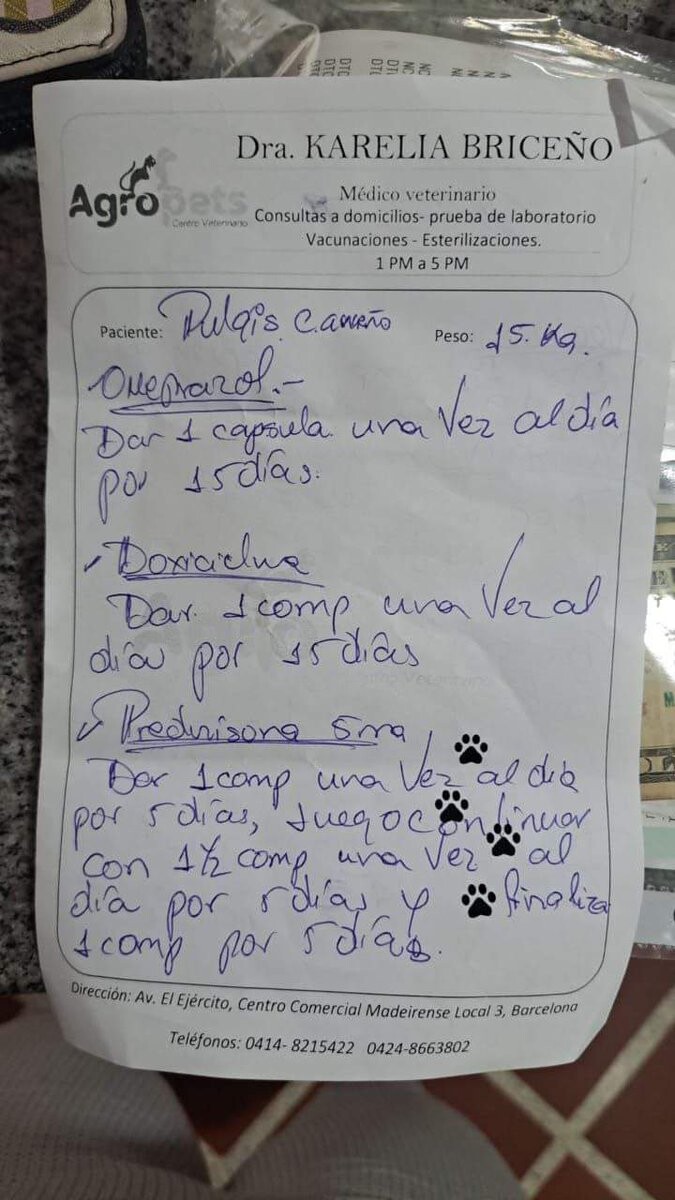 Dra. KARELIA BRICEÑO
Agropets
Centro Veterinario
Médico veterinario
Consultas a domicilios- prueba de laboratorio
Vacunaciones - Esterilizaciones.
1 PM a 5 PM
Paciente: Pulgis Carreño Peso: 15. Kg.
Omeprazol.-
Dar 1 capsula una vez al día
por 15 días.
✓ Doxiciclina
Dar. 1 comp una vez al
día por 15 días
✓ Prednisona 5mg
Dar 1 comp una vez al día
por 5 días, luego continuar
con 1 1/2 comp una vez al
día por 5 días y finaliza
1 comp por 5 días.
Dirección: Av. El Ejército, Centro Comercial Madeirense Local 3, Barcelona
Teléfonos: 0414- 8215422 0424-8663802